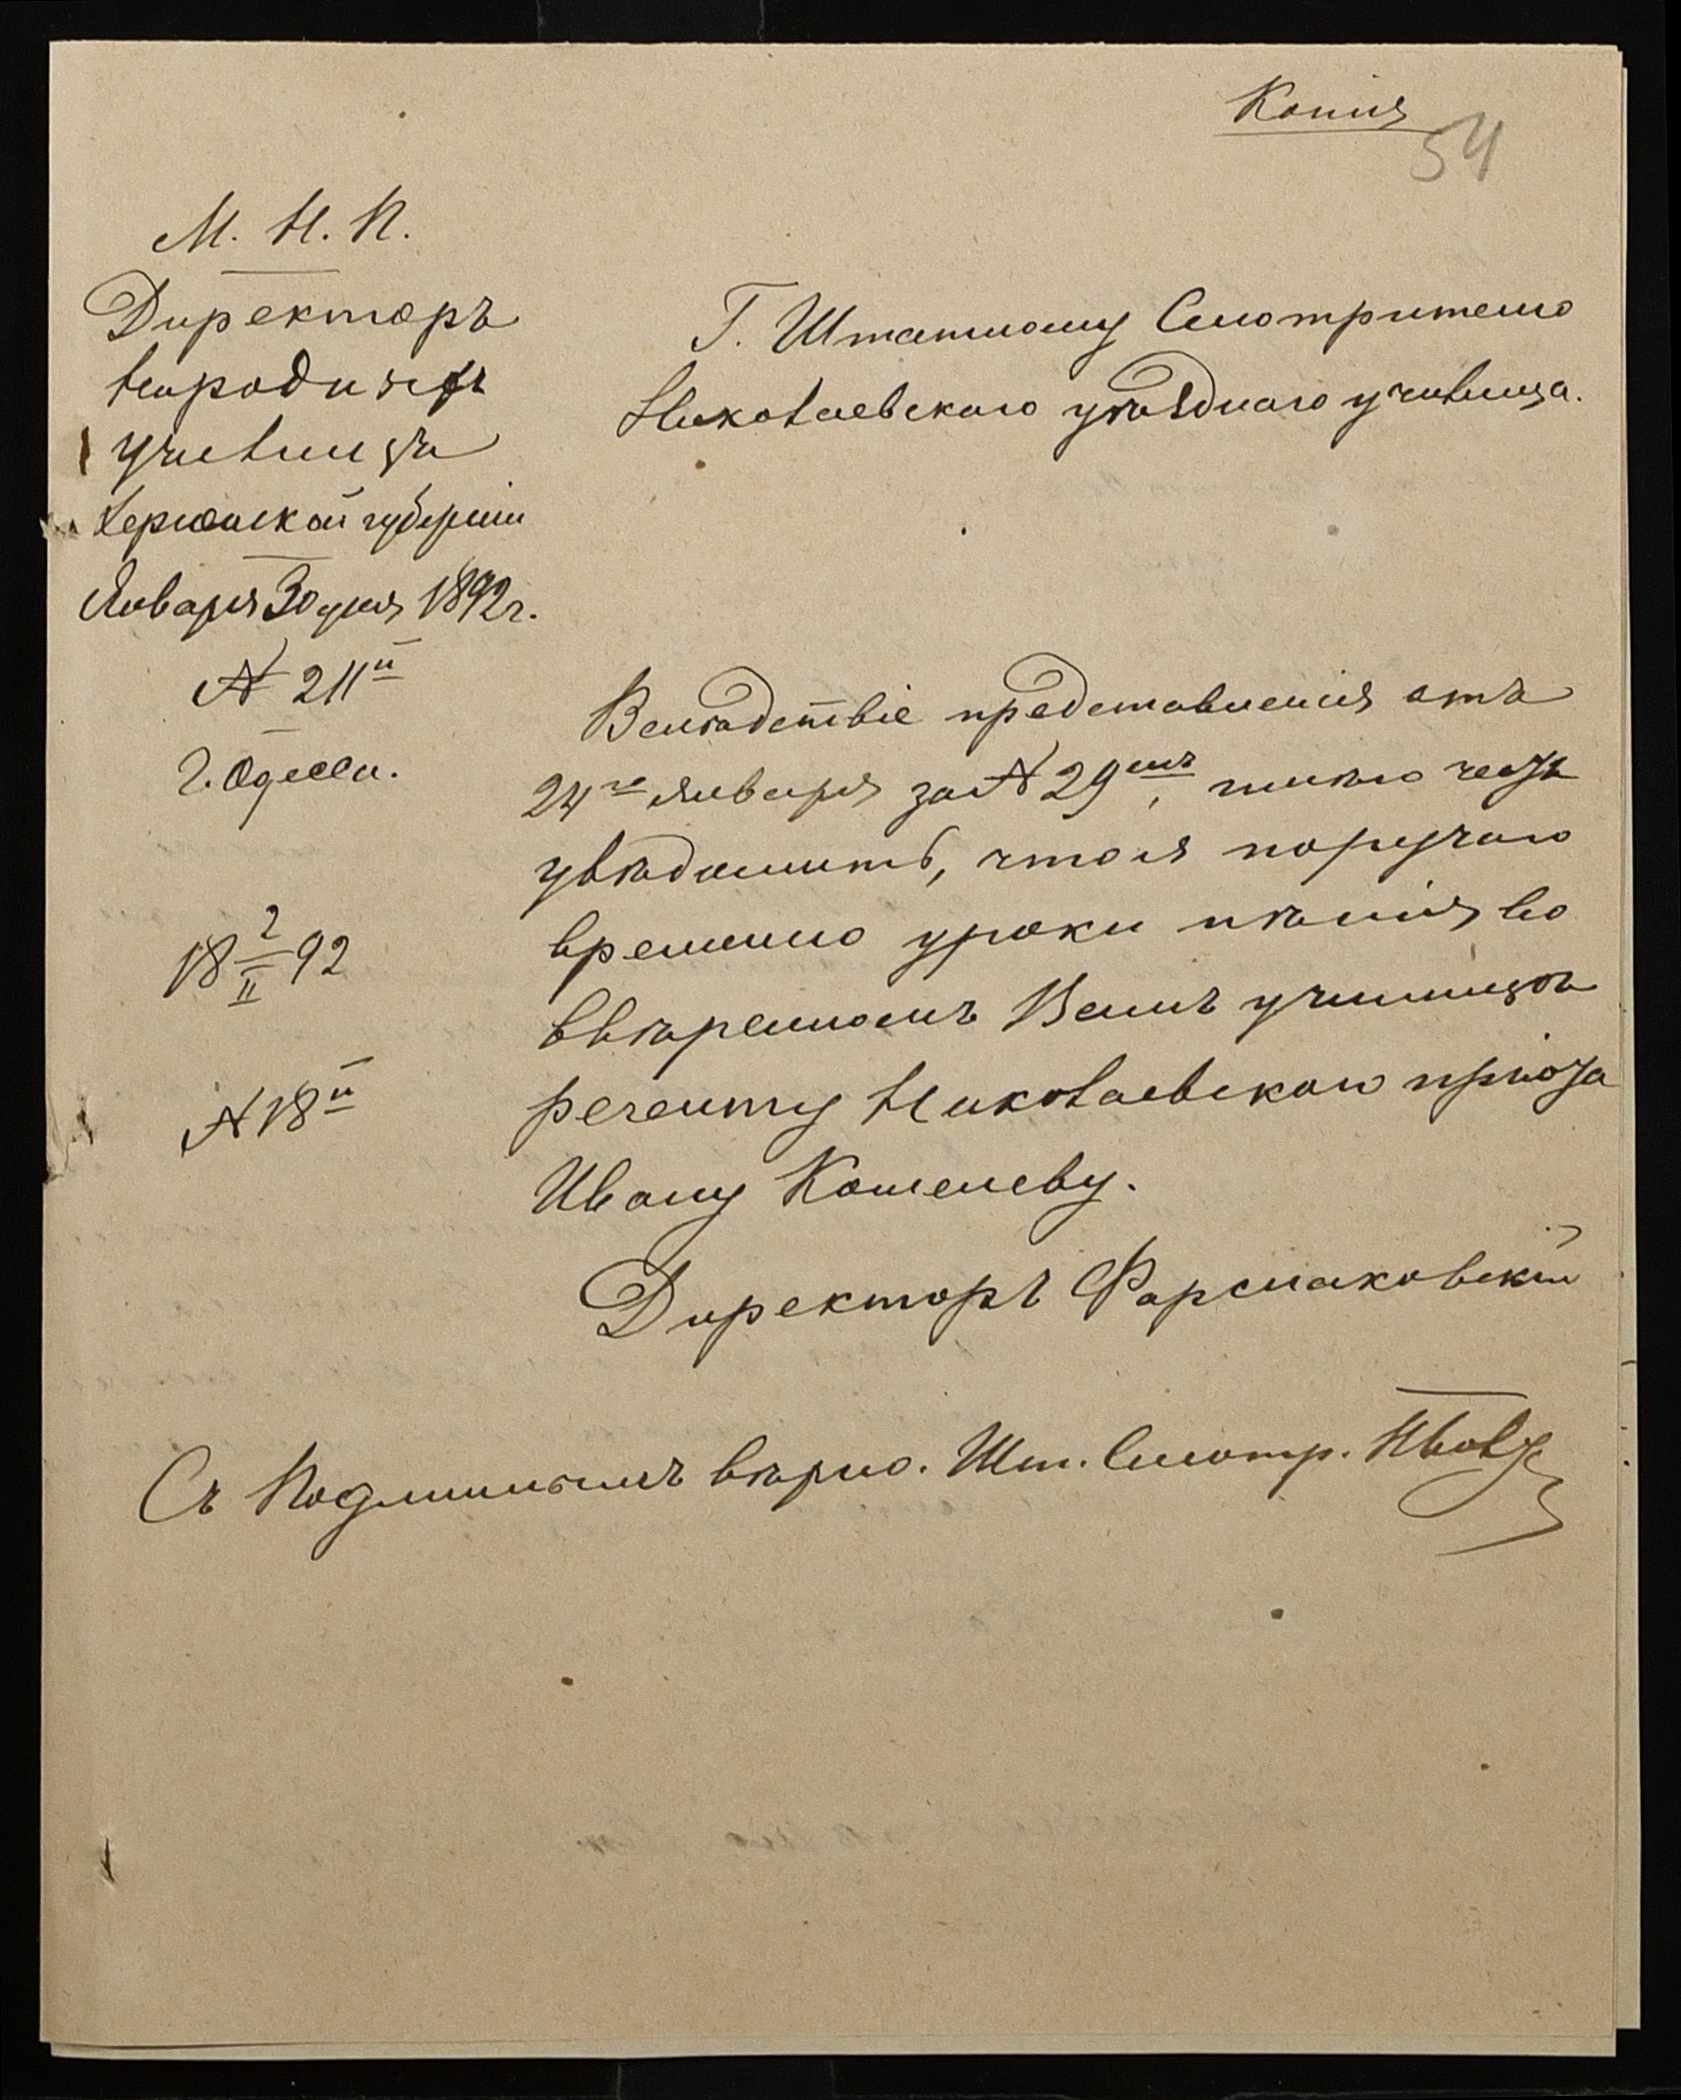 Копія
54
М. Н. П.
Директоръ
народныхъ
училищъ
Херсонской губерніи
Января 30 дня 1892 г.
№ 211й
г. Одесса.
18 2/II 92
№ 18й
Г. Штатному Смотрителю
Николаевскаго уѣзднаго училища.
Вслѣдствіе представленія отъ
24го Января за № 29мъ, имѣю честь
увѣдомить, что я поручаю
временно уроки пѣнія во
ввѣренномъ Вамъ училищѣ
регенту Николаевскаго пріюта
Ивану Кошелеву.
Директоръ Фармаковскій
Съ подлиннымъ вѣрно. Шт. Смотр.